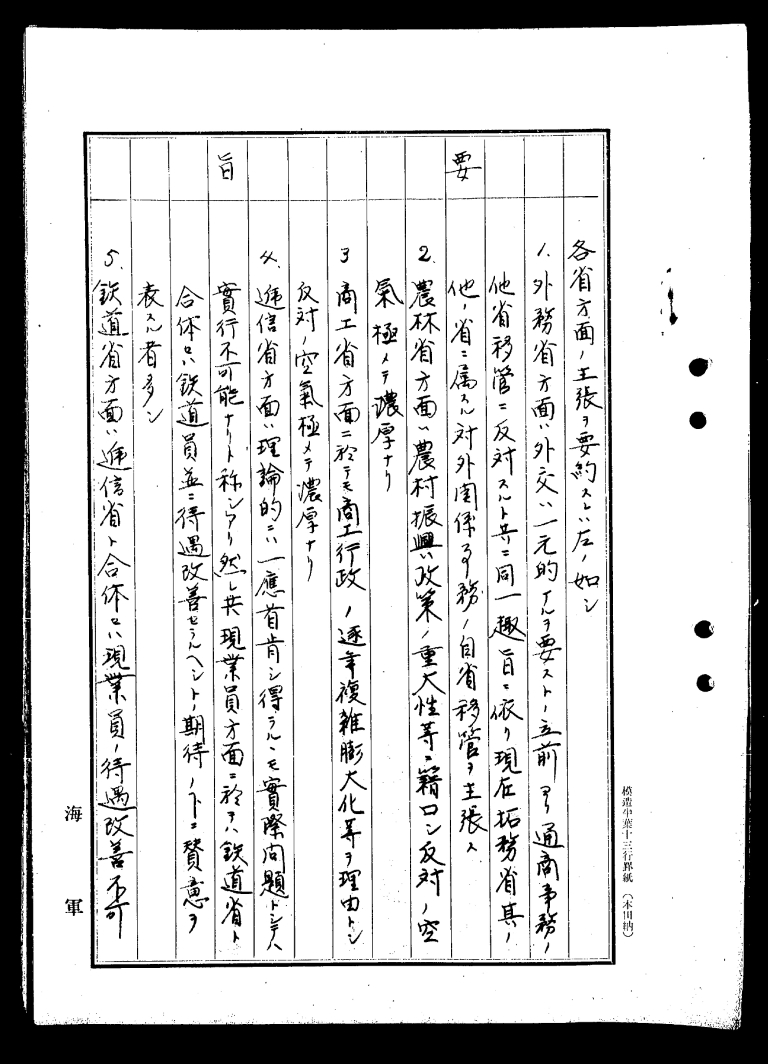 要旨
各省方面ノ主張ヲ要約スレハ左ノ如シ
1. 外務省方面ハ外交ハ一元的ナルヲ要ストノ立前ヨリ通商事務ノ
他省移管ニ反対スルト共ニ同一趣旨ニ依リ現在拓務省其ノ
他ノ省ニ属スル対外関係事務ノ自省移管ヲ主張ス
2. 農林省方面ハ農村振興政策ノ重大性等ニ籍口シ反対ノ空
氣極メテ濃厚ナリ
3 商工省方面ニ於テモ商工行政ノ逐年複雑膨大化等ヲ理由トシ
反対ノ空氣極メテ濃厚ナリ
4. 逓信省方面ハ理論的ニハ一應首肯シ得ラルヽモ實際問題トシテハ
實行不可能ナリト称シアリ然レ共現業員方面ニ於テハ鉄道省ト
合体セハ鉄道員並ニ待遇改善セラルヘシトノ期待ノ下ニ賛意ヲ
表スル者多シ
5. 鉄道省方面ハ逓信省ト合体セハ現業員ノ待遇改善不可
海軍
模造半葉十三行罫紙 (本田納)